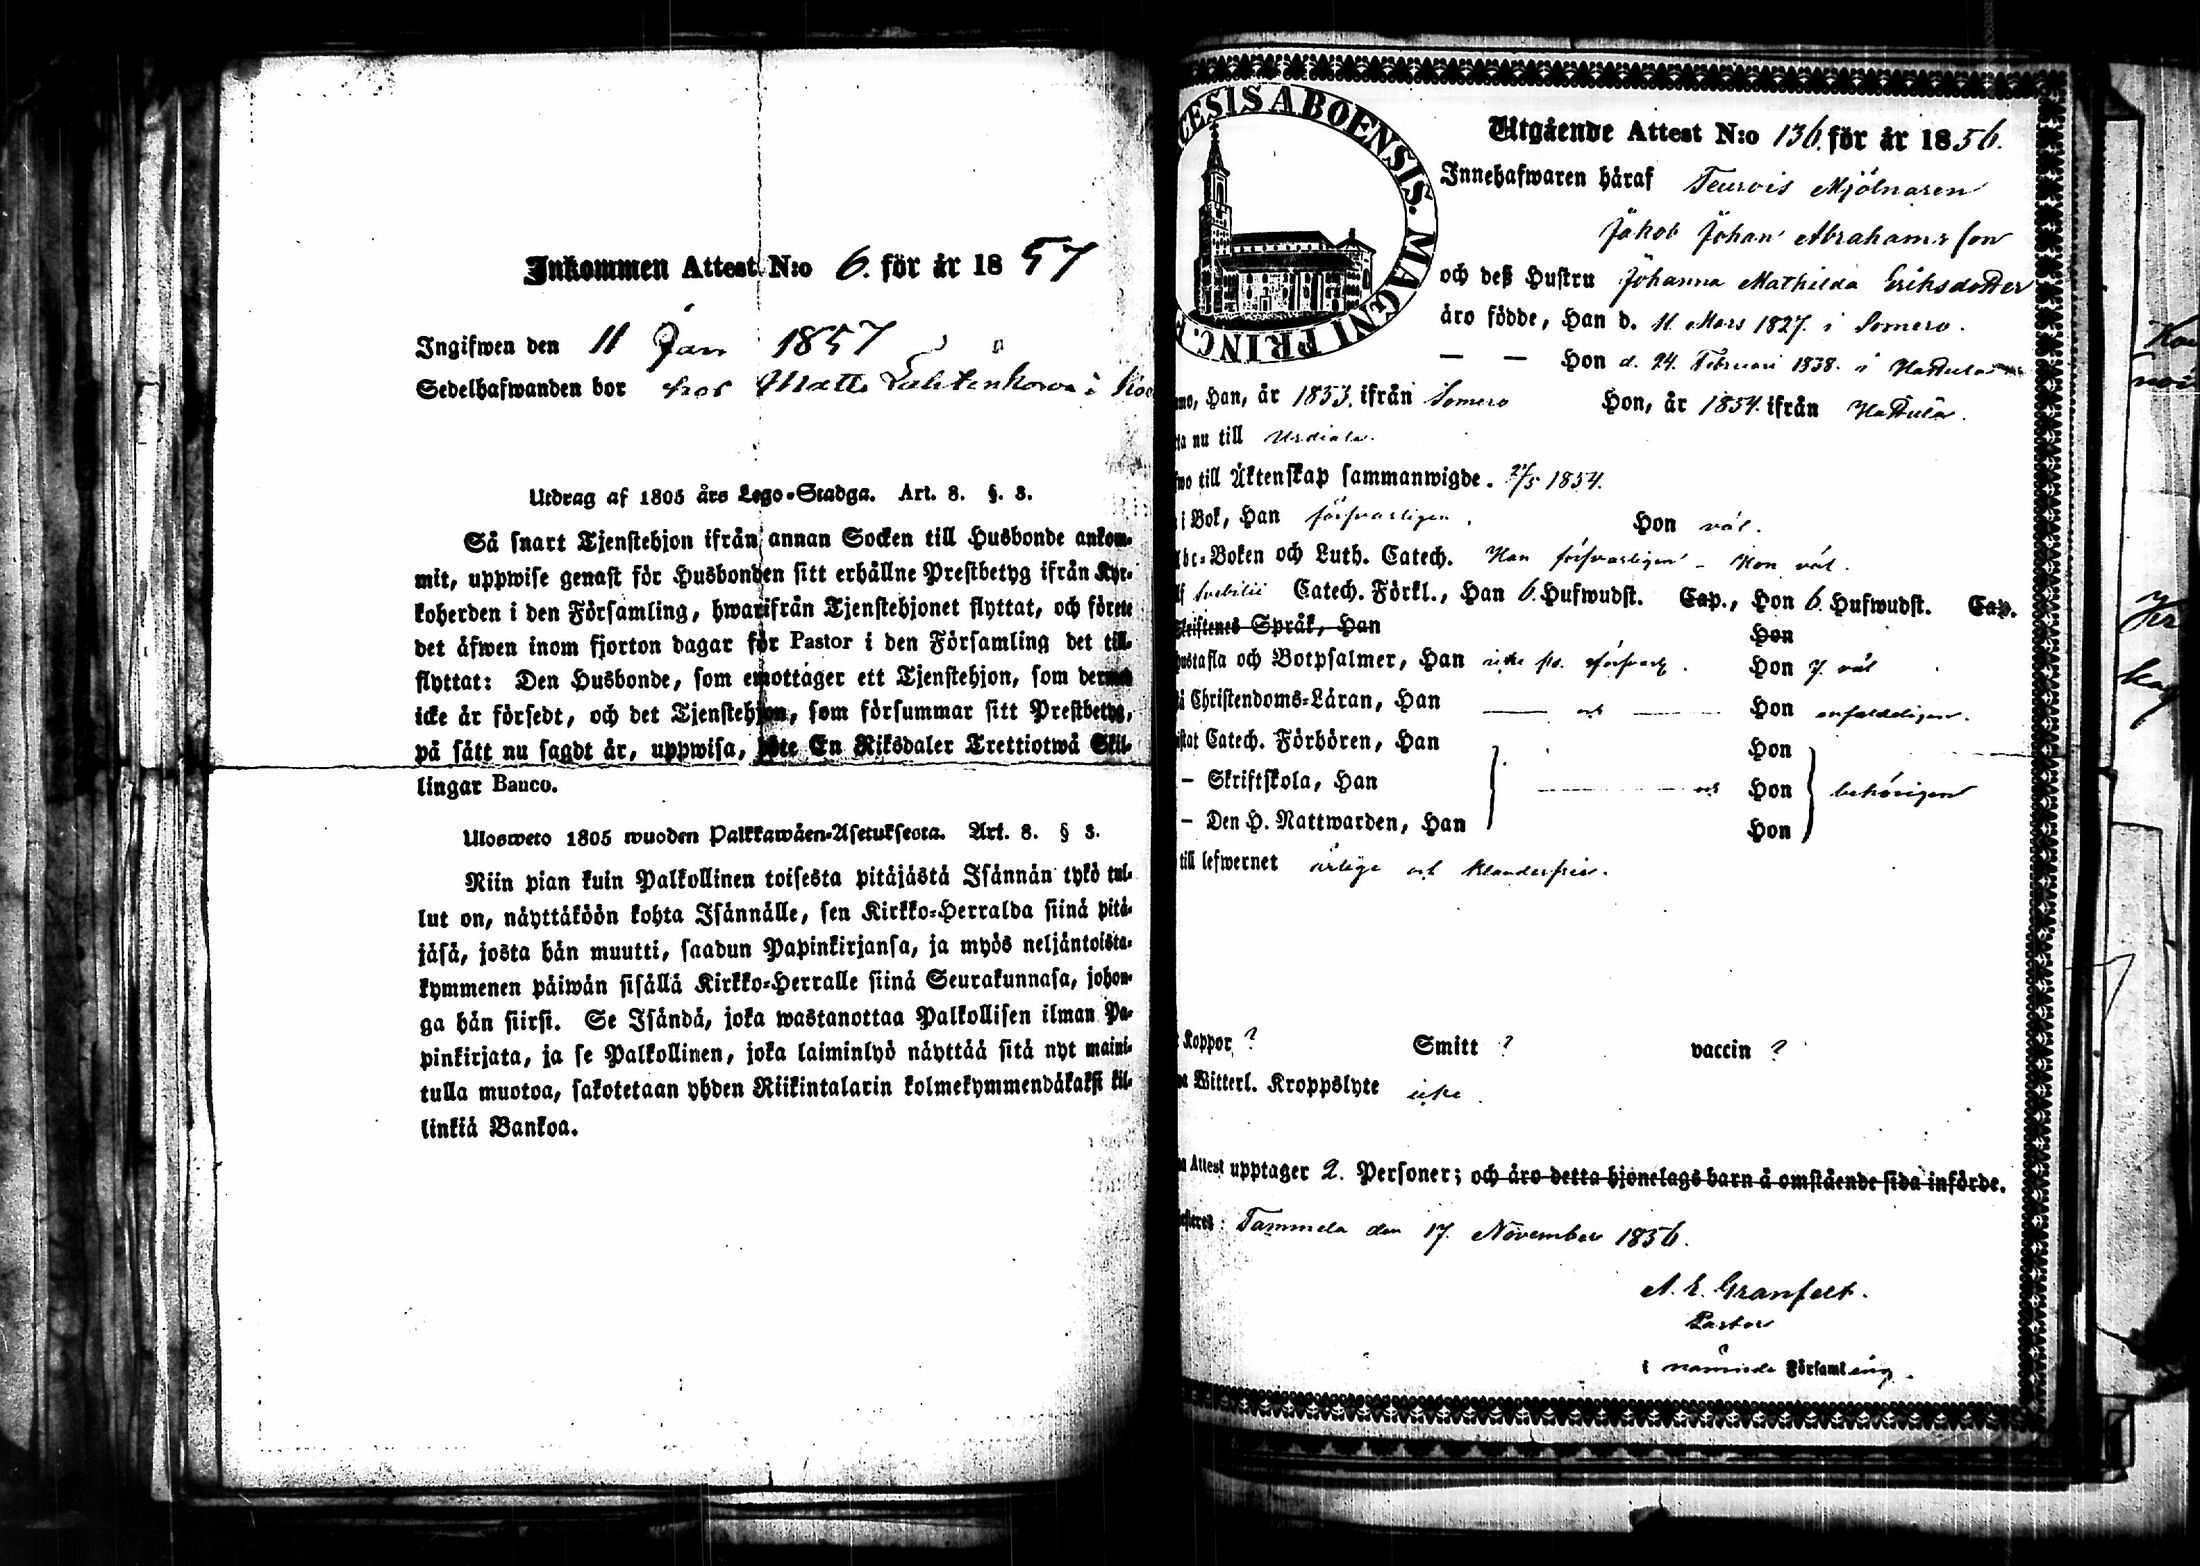 Inkommen Attest N:o 6. för år 1857
Ingifwen den 11 Jan 1857
Sedelhafwanden bor hos Matts Lahtenkorva i
Utdrag af 1805 års Lego-Stadga. Art. 8. §. 3.
Så snart Tjenstehjon ifrån annan Socken till Husbonde ankom-
mit, uppwise genast för Husbonden sitt erhållne Prestbetyg ifrån Kyr-
koherden i den Församling, hwarifrån Tjenstehjonet flyttat, och förete
det äfwen inom fjorton dagar för Pastor i den Församling det till-
flyttat: Den Husbonde, som emottager ett Tjenstehjon, som dermed
icke är försedt, och det Tjenstehjon, som försummar sitt Prestbetyg,
på sätt nu sagdt är, uppwisa, böte En Riksdaler Trettiotwå Skil-
lingar Banco.
Ulosweto 1805 wuoden Palkkawäen-Asetuksesta. Art. 8. § 3.
Niin pian kuin Palkollinen toisesta pitäjästä Isännän tykö tul-
lut on, näyttäköön kohta Isännälle, sen Kirkko-Herralda siinä pitä-
jäsä, josta hän muutti, saadun Papinkirjansa, ja myös neljäntoista-
kymmenen päiwän sisällä Kirkko-Herralle siinä Seurakunnasa, johon-
ga hän siirsi. Se Isändä, joka wastanottaa Palkollisen ilman Pa-
pinkirjata, ja se Palkollinen, joka laiminlyö näyttää sitä nyt maini-
tulla muotoa, sakotetaan yhden Riikintalarin kolmekymmendäkaksi kil-
linkiä Bankoa.
CESIS ABOENSIS. MAGNI PRINC. F
Utgående Attest N:o 136. för år 1856.
Innehafwaren häraf Teurois Mjölnaren
Jakob Johan Abrahamsson
och deß Hustru Johanna Mathilda Eriksdotter
äro födde, Han d. 11 Mars 1827. i Somero.
— — Hon d. 24. Februari 1838. i Hattula
mo, Han, år 1853. ifrån Somero Hon, år 1854. ifrån Hattula.
ta nu till Urdiala.
wo till Äktenskap sammanwigde. 21/5 1854.
i Bok, Han försvarligen. Hon väl.
Abc-Boken och Luth. Catech. Han försvarligen - Hon väl.
lf Svebilii Catech. Förkl., Han 6. Hufwudst. Cap., Hon 6. Hufwudst. Cap.
Skriftenes Språk, Han Hon
Hustafla och Botpsalmer, Han Hon 7. väl
i Christendoms-Läran, Han — och — Hon enfaldeligen.
istat Catech. Förhören, Han Hon
- Skriftskola, Han — och Hon behörigen
- Den H. Nattwarden, Han Hon
till lefwernet ärlige och klanderfrie.
Koppor ? Smitt ? vaccin ?
Witterl. Kroppslyte icke.
na Attest upptager 2. Personer; och äro detta hjonelags barn å omstående sida införde.
esteres: Tammela den 17. November 1856.
A. E. Granfelt.
Pastor
i nämnde Församling.